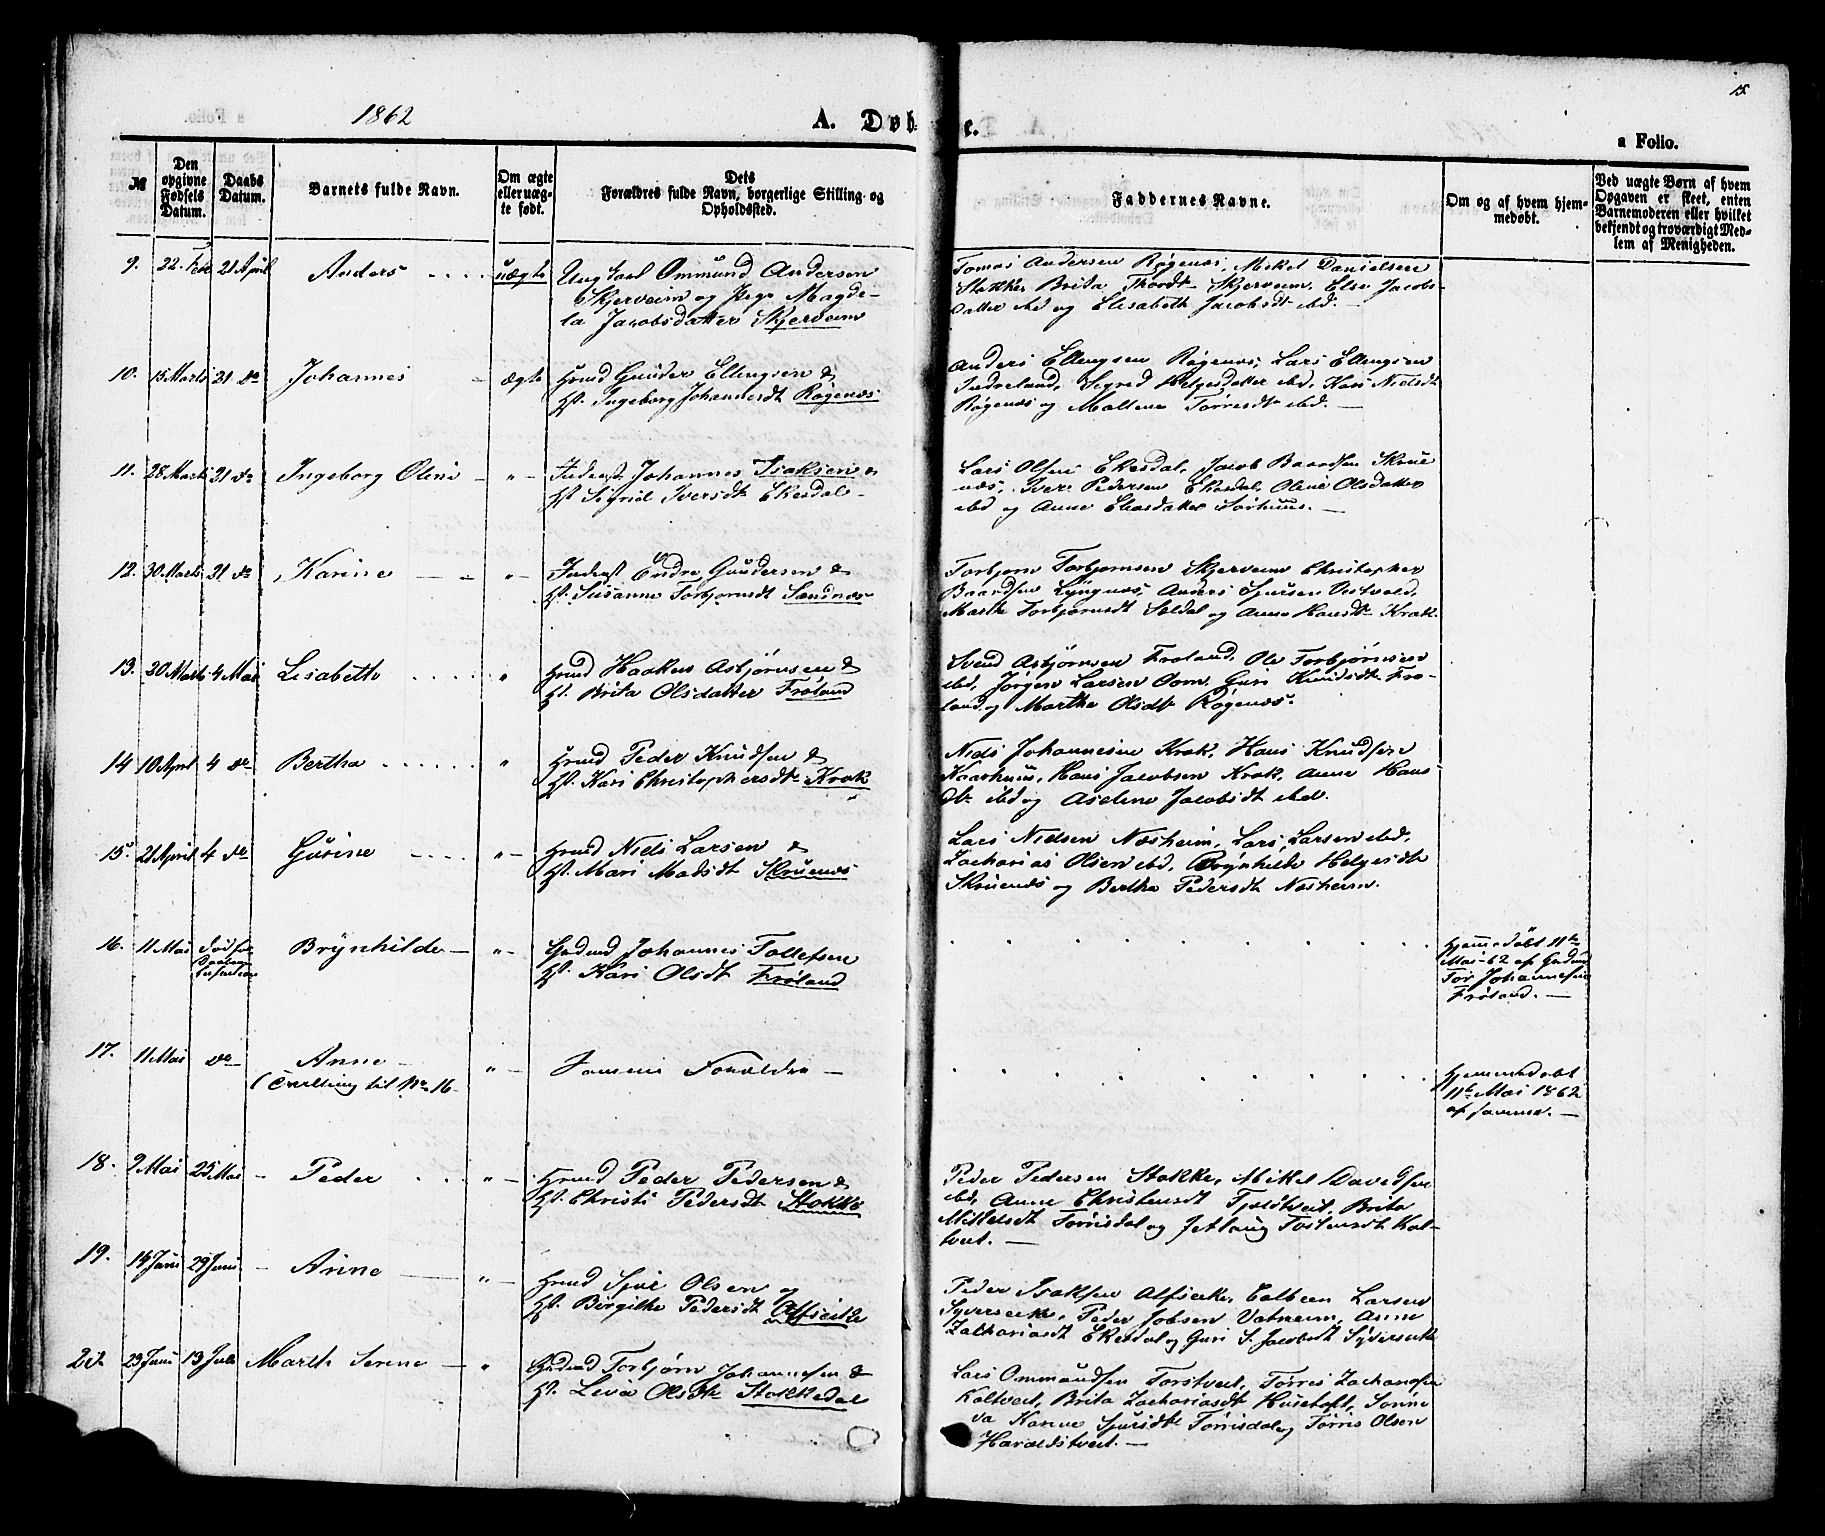 15
1862
A. Døbte.
a Folio.
№
Den opgivne Fødsels Datum.
Daabs Datum.
Barnets fulde Navn.
Om ægte eller uægte født.
Dets Forældres fulde Navn, borgerlige Stilling og Opholdssted.
Faddernes Navne.
Om og af hvem hjemmedøbt.
Ved uægte Børn af hvem Opgaven er skeet, enten Barnemoderen eller hvilket bekjendt og troværdigt Medlem af Menigheden.
9. 22. Feb 21 April Anders uægte
Ungkarl Ommund Andersen
Skjerveim og Pige Magde-
la Jacobsdatter Skjerveim
Tomas Andersen Røgenæs, Mikel Danielsen
Stokke Brita Thordt Skjerveim, Else Jacobs-
datter ibd og Elisabeth Jacobsdt ibd.
10. 15 Marts 21 do Johannes ægte
Grmd Gunder Ellingsen &
H. Ingeborg Johannesdt Røgenæs
Anders Ellingsen Røgenæs, Lars Ellingsen
Indreland, Sigred Helgesdatter ibd, Kari Nielsdt
Røgenæs og Maltene Tørresdt ibd.
11. 28 Marts 21 do Ingeborg Oline
Inderst Johannes Isaksen &
H. Sigrid Iversdt Ekesdal
Lars Olsen Ekesdal, Jacob Baardsen Skrue
næs, Iver Pedersen Ekesdal, Oline Olsdatter
ibd og Anne Eliasdatter Aarhuus.
12. 30 Marts 21 do Karine
Inderst Endre Gundersen &
H. Susanne Torbjørnsdt Sandnæs
Torbjørn Torbjørnsen Skjerveim Christopher
Baardsen Lyngnæs, Anders Sjursen Vestvold,
Marthe Torbjørnsdt Søldal og Anne Hansdt Krak.
13. 20 Marts 4 Mai Lisabeth
Grmd Haaken Asbjørnsen &
H. Brita Olsdatter Frøland
Svend Asbjørnsen Frøland, Ole Torbjørnsen
ibd, Jørgen Larsen Dom, Guri Knudsdt Frø-
land og Marthe Olsdt Røgenæs.
14 10 April 4 do Bertha
Grmd Peder Knudsen &
H. Kari Christophersdt Krak
Niels Johannesen Krak, Hans Knudsen
Kaarhuus, Hans Jacobsen Krak, Anne Hans-
dt ibd og Aseline Jacobsdt ibd.
15 21 April 4 do Gurine
Grmd Niels Larsen &
H. Mari Madsdt Skruenæs
Lars Nielsen Næsheim, Lars Larsen ibd,
Zacharias Olsen ibd, Brynhilde Helgesdt
Skruenæs og Bertha Pedersdt Næsheim.
16. 11 Mai Brynhilde
Grdmd Johannes Tollefsen
H. Kari Olsdt Frøland
Hjemmedøbt 11te
Mai 62 af Grdmd
Tor Johannesen
Frøland.
17. 11 Mai do Anne
(Tvilling til No 16
Samme Forældre
Hjemmedøbt
11te Mai 1862
af samme.
18. 2 Mai 25 Mai Peder
Grmd Peder Pedersen &
H. Christi Pedersdt Stokke
Peder Pedersen Stokke, Mikel Davidsen
ibd, Anne Christensdt Tjoldtveit, Brita
Mikkelsdt Tørrisdal og Jetlaug Tostensdt Kal-
tveit.
19. 14 Juni 29 Juni Anne
Grmd Sjur Olsen og
H. Birgithe Pedersdt Alfseike
Peder Isaksen Alfseike, Colbein Larsen
Syverseike, Peder Jobsen Vatneim, Anne
Zachariasdt Ekesdal og Guri S. Jacobsdt Syverseike
20 23 Juni 13 Juli Marth Serine
Grdmd Torbjørn Johannesen &
H. Liva Olsdtr Stokkedal
Lars Ommundsen Torstveit, Tørres Zachariasen
Kaltveit, Brita Zachariasdt Husetoft, Sønne
va Karine Sjursdtr Tørrisdal og Tørris Olsen
Haraldstveit.